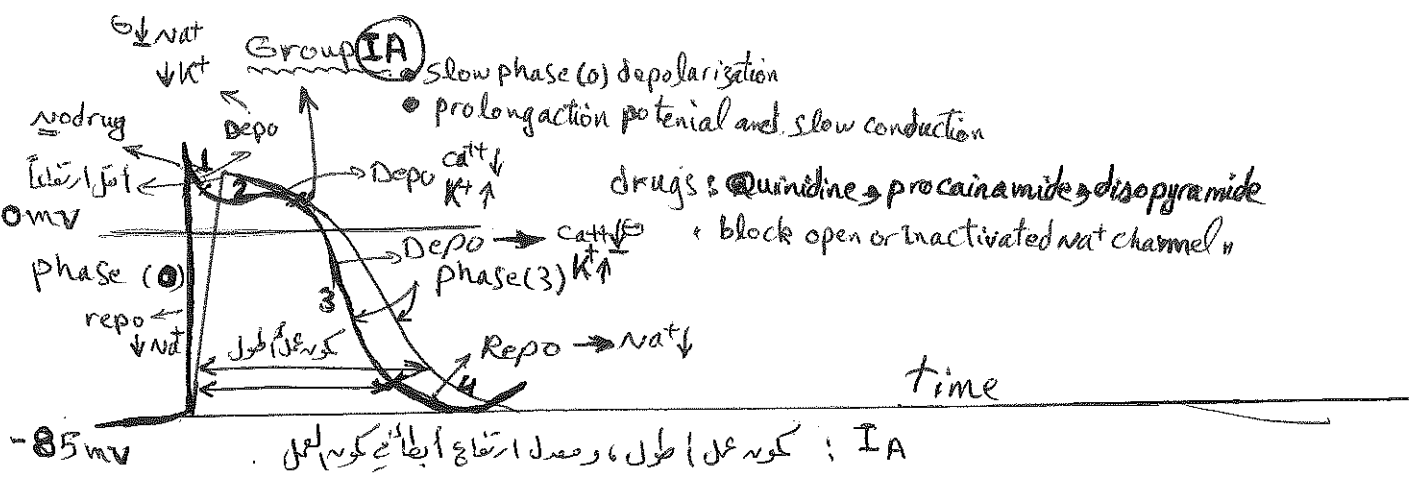 ⊖↓ Na+
↓K+
Group IA
• Slow phase (0) depolarization
• prolong action potenial and slow conduction
No drug
Depo
1
أقل ارتفاعاً
2
Depo Ca++ ↓
K+ ↑
drugs: Quinidine, procainamide, disopyramide
0 mv
Depo → Ca++↓⊖
" block open or inactivated Na+ channel "
phase (0)
phase (3) K+↑
3
repo
↓Na+
كمون عمل أطول
Repo → Na+↓
4
time
-85 mv
IA : كمون عمل أطول، ومعدل ارتفاع أبطأ في كمون العمل .